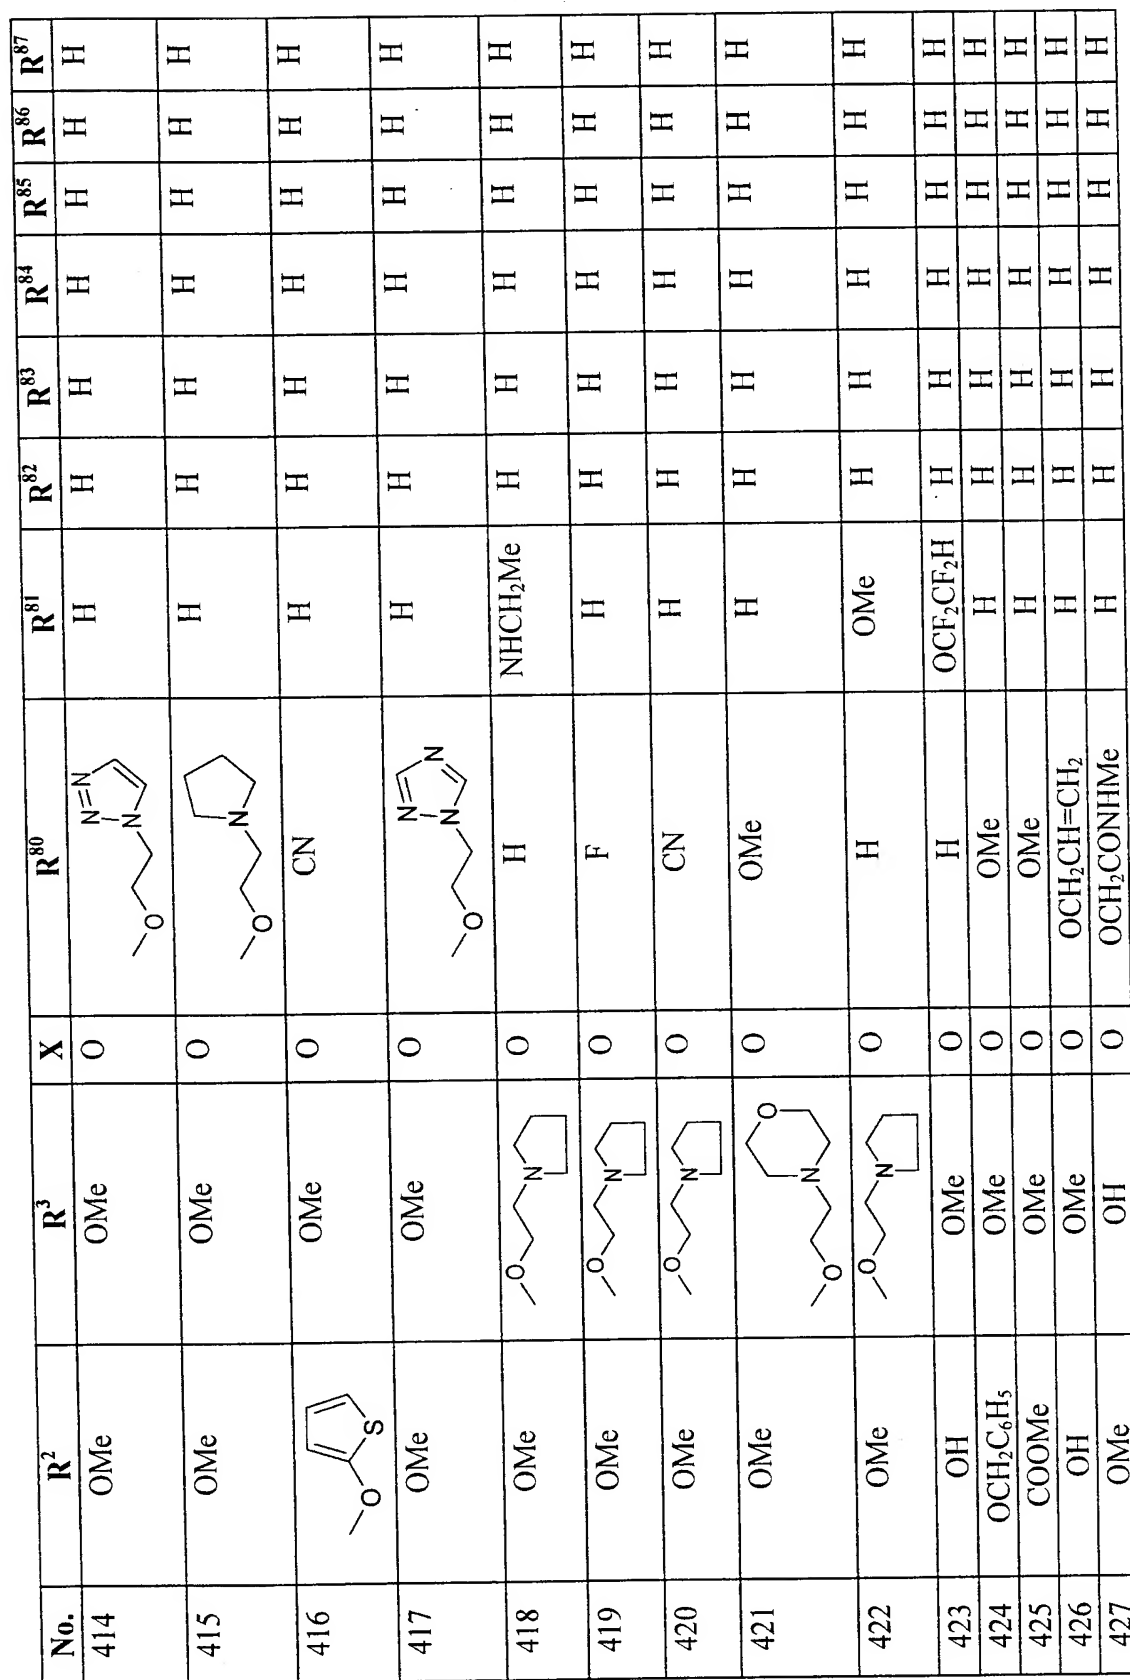 No. R² R³ X R⁸⁰ R⁸¹ R⁸² R⁸³ R⁸⁴ R⁸⁵ R⁸⁶ R⁸⁷
414 OMe OMe O O N N=N H H H H H H H
415 OMe OMe O O N H H H H H H H
416 O S OMe O CN H H H H H H H
417 OMe OMe O O N N N H H H H H H H
418 OMe O N O H NHCH₂Me H H H H H H
419 OMe O N O F H H H H H H H
420 OMe O N O CN H H H H H H H
421 OMe O N O O OMe H H H H H H H
422 OMe O N O H OMe H H H H H H
423 OH OMe O H OCF₂CF₂H H H H H H H
424 OCH₂C₆H₅ OMe O OMe H H H H H H H
425 COOMe OMe O OMe H H H H H H H
426 OH OMe O OCH₂CH=CH₂ H H H H H H H
427 OMe OH O OCH₂CONHMe H H H H H H H